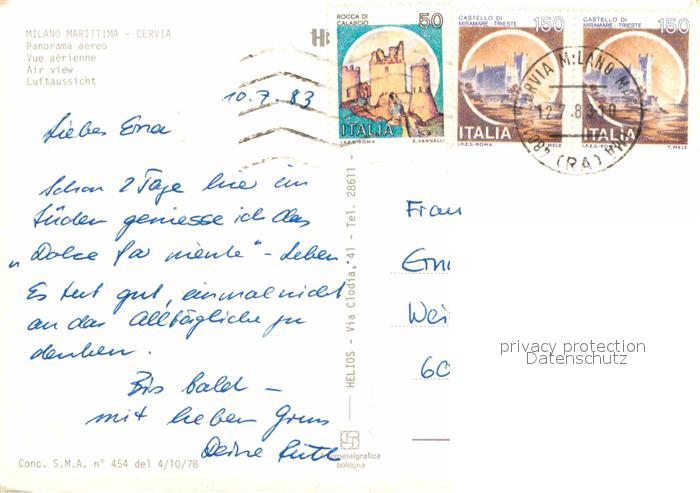 MILANO MARITTIMA - CERVIA
Panorama aereo
Vue aérienne
Air view
Luftaussicht
ROCCA DI
CALASCIO
50
ITALIA
I.P.Z.S.-ROMA E. VANGELLI
CASTELLO DI
MIRAMARE - TRIESTE
150
ITALIA
I.P.Z.S.-ROMA T. MELE
CASTELLO DI
MIRAMARE - TRIESTE
150
ITALIA
I.P.Z.S.-ROMA T. MELE
CERVIA MILANO M
(RA)
10.7.83
Liebes Erna
Schon 2 Tage hier im
Süden geniesse ich das
„Dolce far niente" - Leben.
Es tut gut, einmal nicht
an das Alltägliche zu
denken.
Bis bald -
mit lieben Gruss
Deine Ruth
HELIOS - Via Clodia, 41 - Tel. 28611 -
Frau
Ern
Wei
60
privacy protection
Datenschutz
fotometalgrafica
bologna
Conc. S.M.A. n° 454 del 4/10/78